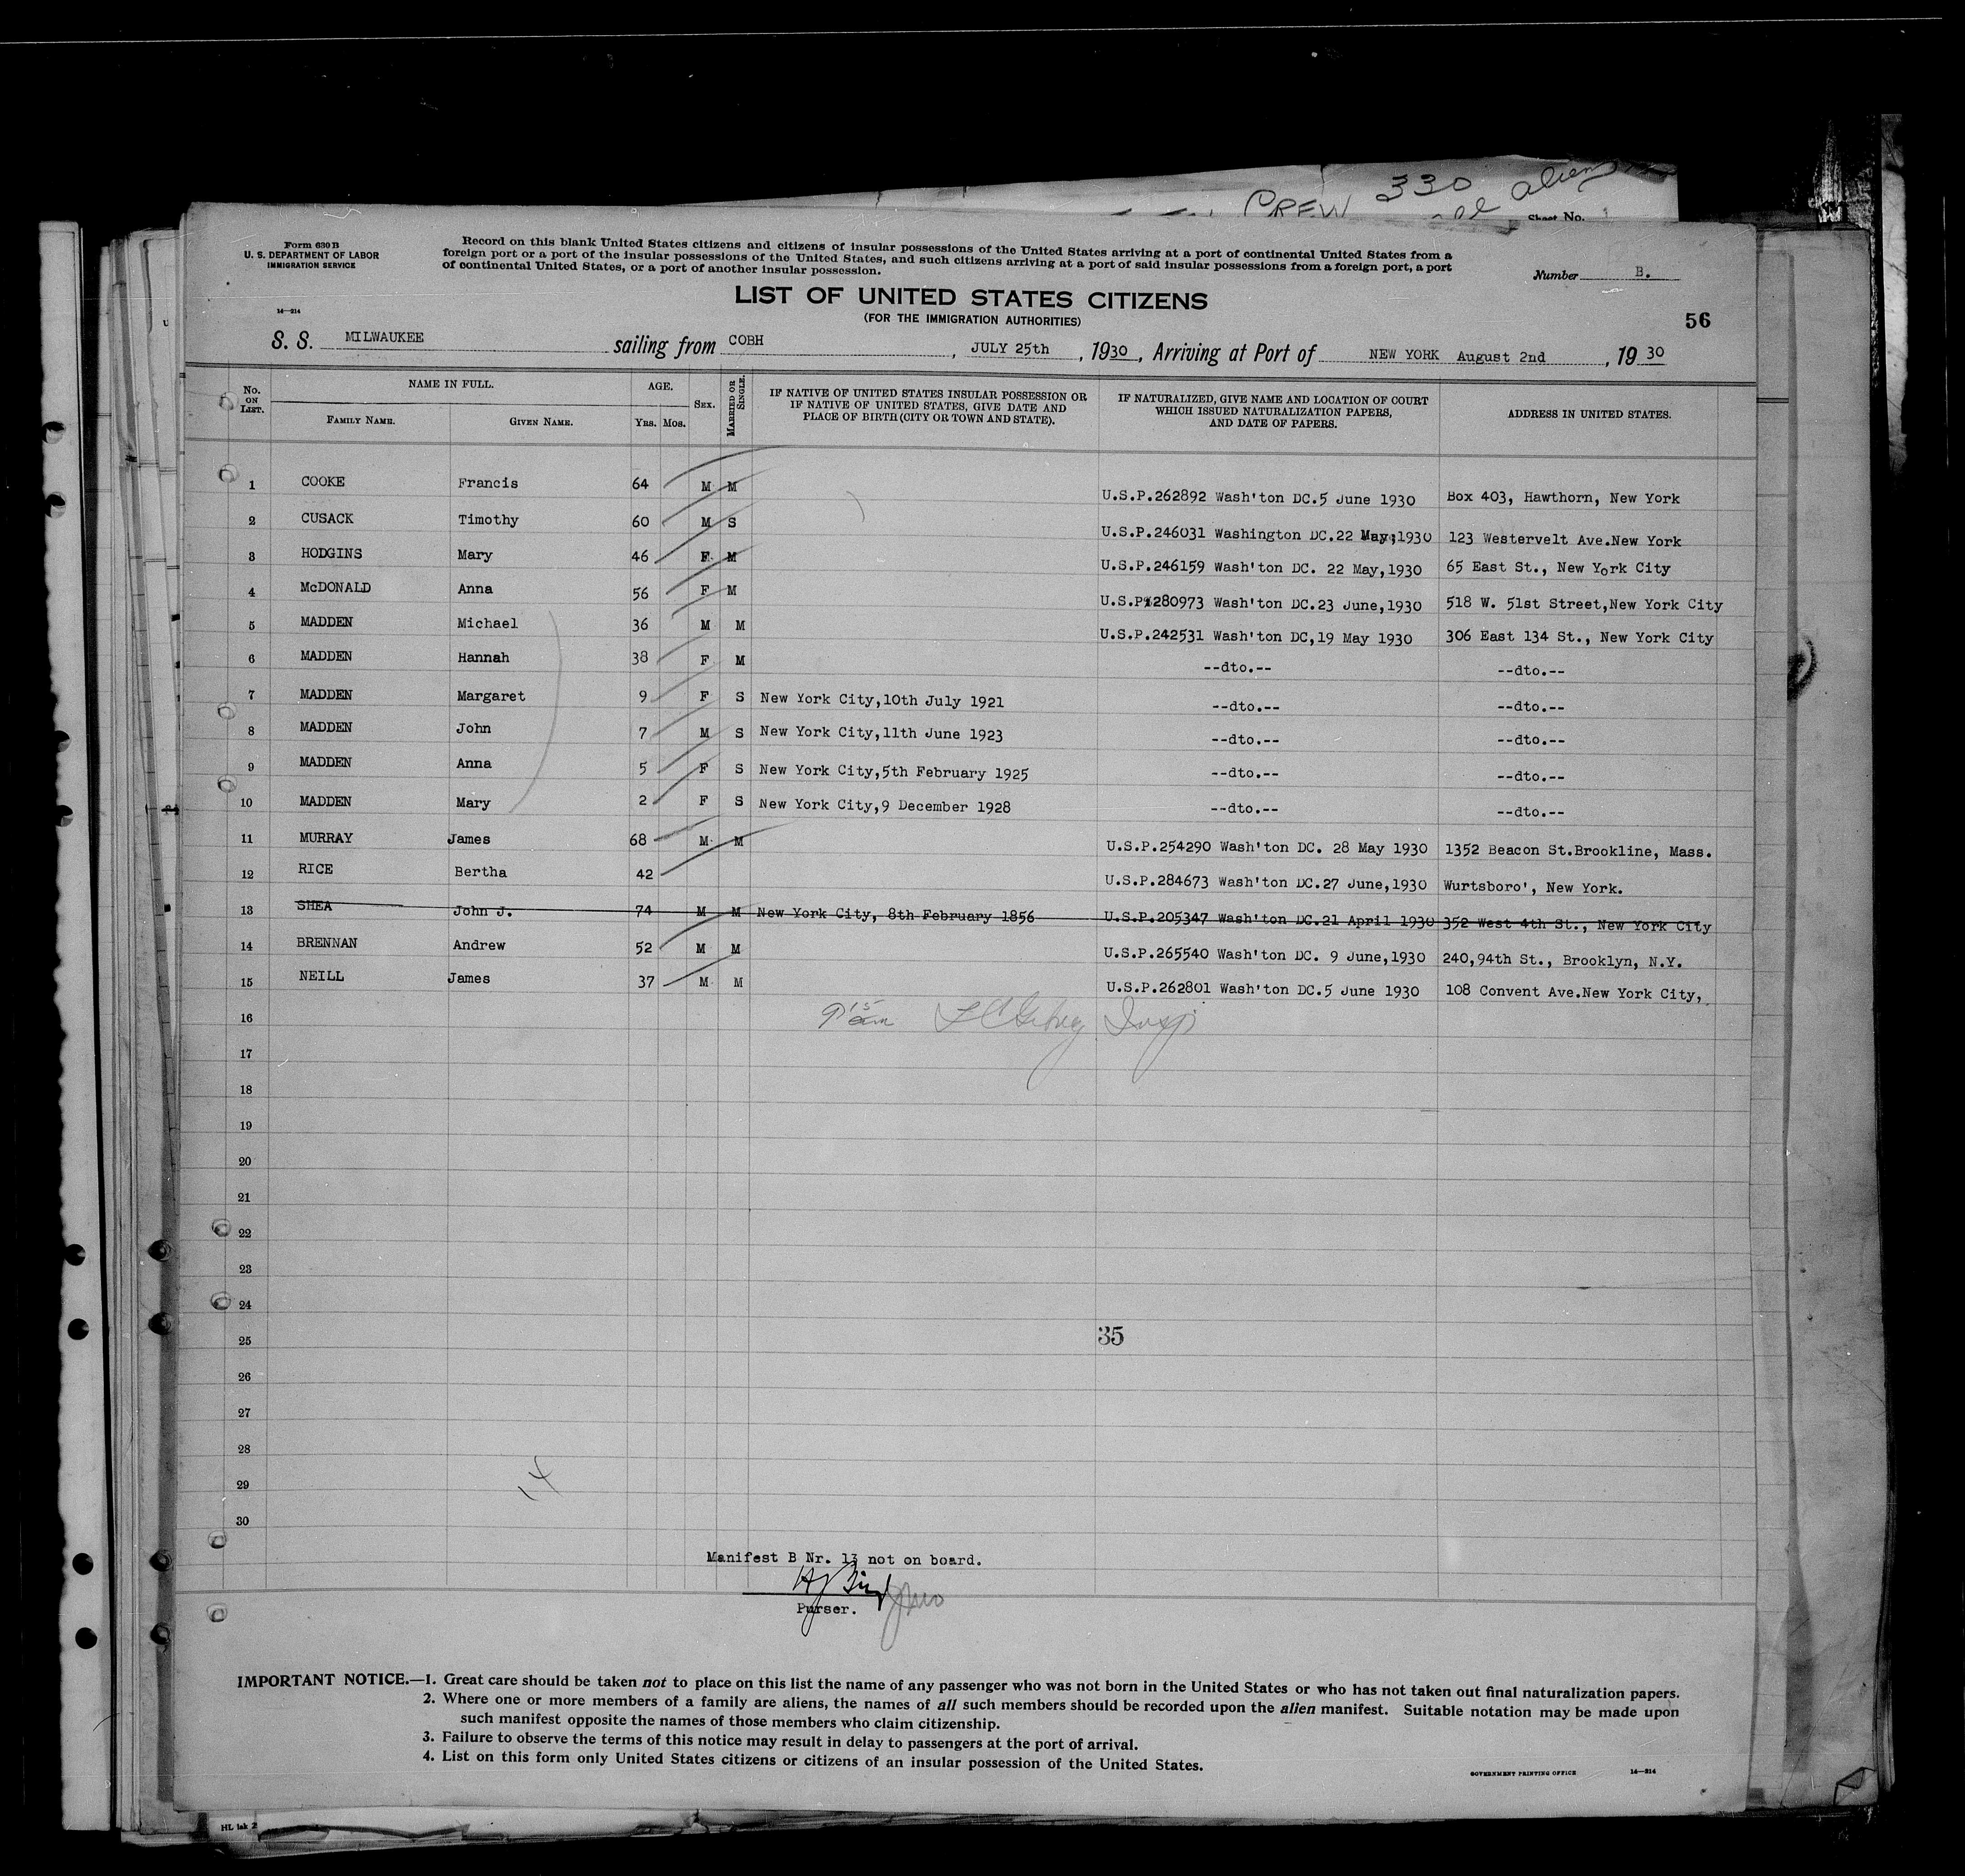 CREW 330 alien
Sheet No. 1
Form 630 B
U. S. DEPARTMENT OF LABOR
IMMIGRATION SERVICE
Record on this blank United States citizens and citizens of insular possessions of the United States arriving at a port of continental United States from a
foreign port or a port of the insular possessions of the United States, and such citizens arriving at a port of said insular possessions from a foreign port, a port
of continental United States, or a port of another insular possession.
Number B.
LIST OF UNITED STATES CITIZENS
(FOR THE IMMIGRATION AUTHORITIES)
14—214
56
S. S. MILWAUKEE sailing from COBH, JULY 25th, 1930, Arriving at Port of NEW YORK August 2nd, 19 30
No. ON LIST. NAME IN FULL. AGE. SEX. MARRIED OR SINGLE. IF NATIVE OF UNITED STATES INSULAR POSSESSION OR IF NATIVE OF UNITED STATES, GIVE DATE AND PLACE OF BIRTH (CITY OR TOWN AND STATE). IF NATURALIZED, GIVE NAME AND LOCATION OF COURT WHICH ISSUED NATURALIZATION PAPERS, AND DATE OF PAPERS. ADDRESS IN UNITED STATES.
FAMILY NAME. GIVEN NAME. YRS. MOS.
1 COOKE Francis 64 M M U.S.P.262892 Wash'ton DC.5 June 1930 Box 403, Hawthorn, New York
2 CUSACK Timothy 60 M S U.S.P.246031 Washington DC.22 May,1930 123 Westervelt Ave.New York
3 HODGINS Mary 46 F M U.S.P.246159 Wash'ton DC. 22 May,1930 65 East St., New York City
4 McDONALD Anna 56 F M U.S.P.280973 Wash'ton DC.23 June,1930 518 W. 51st Street,New York City
5 MADDEN Michael 36 M M U.S.P.242531 Wash'ton DC,19 May 1930 306 East 134 St., New York City
6 MADDEN Hannah 38 F M --dto.-- --dto.--
7 MADDEN Margaret 9 F S New York City,10th July 1921 --dto.-- --dto.--
8 MADDEN John 7 M S New York City,11th June 1923 --dto.-- --dto.--
9 MADDEN Anna 5 F S New York City,5th February 1925 --dto.-- --dto.--
10 MADDEN Mary 2 F S New York City,9 December 1928 --dto.-- --dto.--
11 MURRAY James 68 M M U.S.P.254290 Wash'ton DC. 28 May 1930 1352 Beacon St.Brookline, Mass.
12 RICE Bertha 42 U.S.P.284673 Wash'ton DC.27 June,1930 Wurtsboro', New York.
13 SHEA John J. 74 M M New York City, 8th February 1856 U.S.P.205347 Wash'ton DC.21 April 1930 352 West 4th St., New York City
14 BRENNAN Andrew 52 M M U.S.P.265540 Wash'ton DC. 9 June,1930 240,94th St., Brooklyn, N.Y.
15 NEILL James 37 M M U.S.P.262801 Wash'ton DC.5 June 1930 108 Convent Ave.New York City,
16 Insp
17
18
19
20
21
22
23
24
25 35
26
27
28
29 14
30
Manifest B Nr. 13 not on board.
Purser.
IMPORTANT NOTICE.—1. Great care should be taken not to place on this list the name of any passenger who was not born in the United States or who has not taken out final naturalization papers.
2. Where one or more members of a family are aliens, the names of all such members should be recorded upon the alien manifest. Suitable notation may be made upon
such manifest opposite the names of those members who claim citizenship.
3. Failure to observe the terms of this notice may result in delay to passengers at the port of arrival.
4. List on this form only United States citizens or citizens of an insular possession of the United States.
GOVERNMENT PRINTING OFFICE 14—214